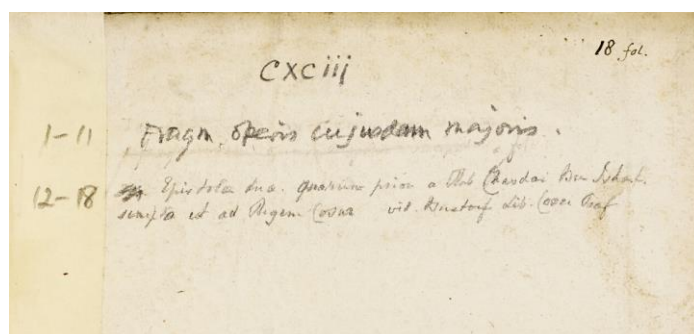 18 fol.
CXCiii
1-11 Fragm. operis cujusdam majoris.
12-18 Epistolae duae. quarum prior a Rab Chasdai Ben Ishak.
scripta et ad Regem Cosar vid. Buxtorf Lib. Cosri Praef